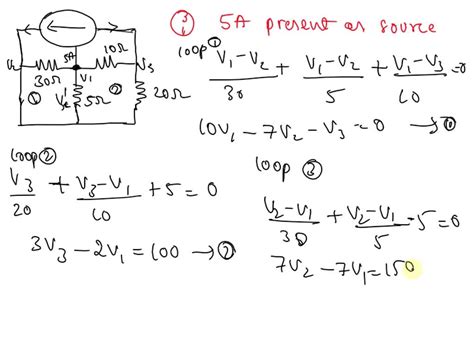 ③ 5A present as source
10Ω
5A
V₁
V₃
30Ω
①
②
5Ω
20Ω
loop ①
(V₁ − V₂)/30 + (V₁ − V₂)/5 + (V₁ − V₃)/10 = 0
10V₁ − 7V₂ − V₃ = 0 → ①
loop ②
V₃/20 + (V₃ − V₁)/10 + 5 = 0
3V₃ − 2V₁ = 100 → ②
loop ③
(V₂ − V₁)/30 + (V₂ − V₁)/5 − 5 = 0
7V₂ − 7V₁ = 150